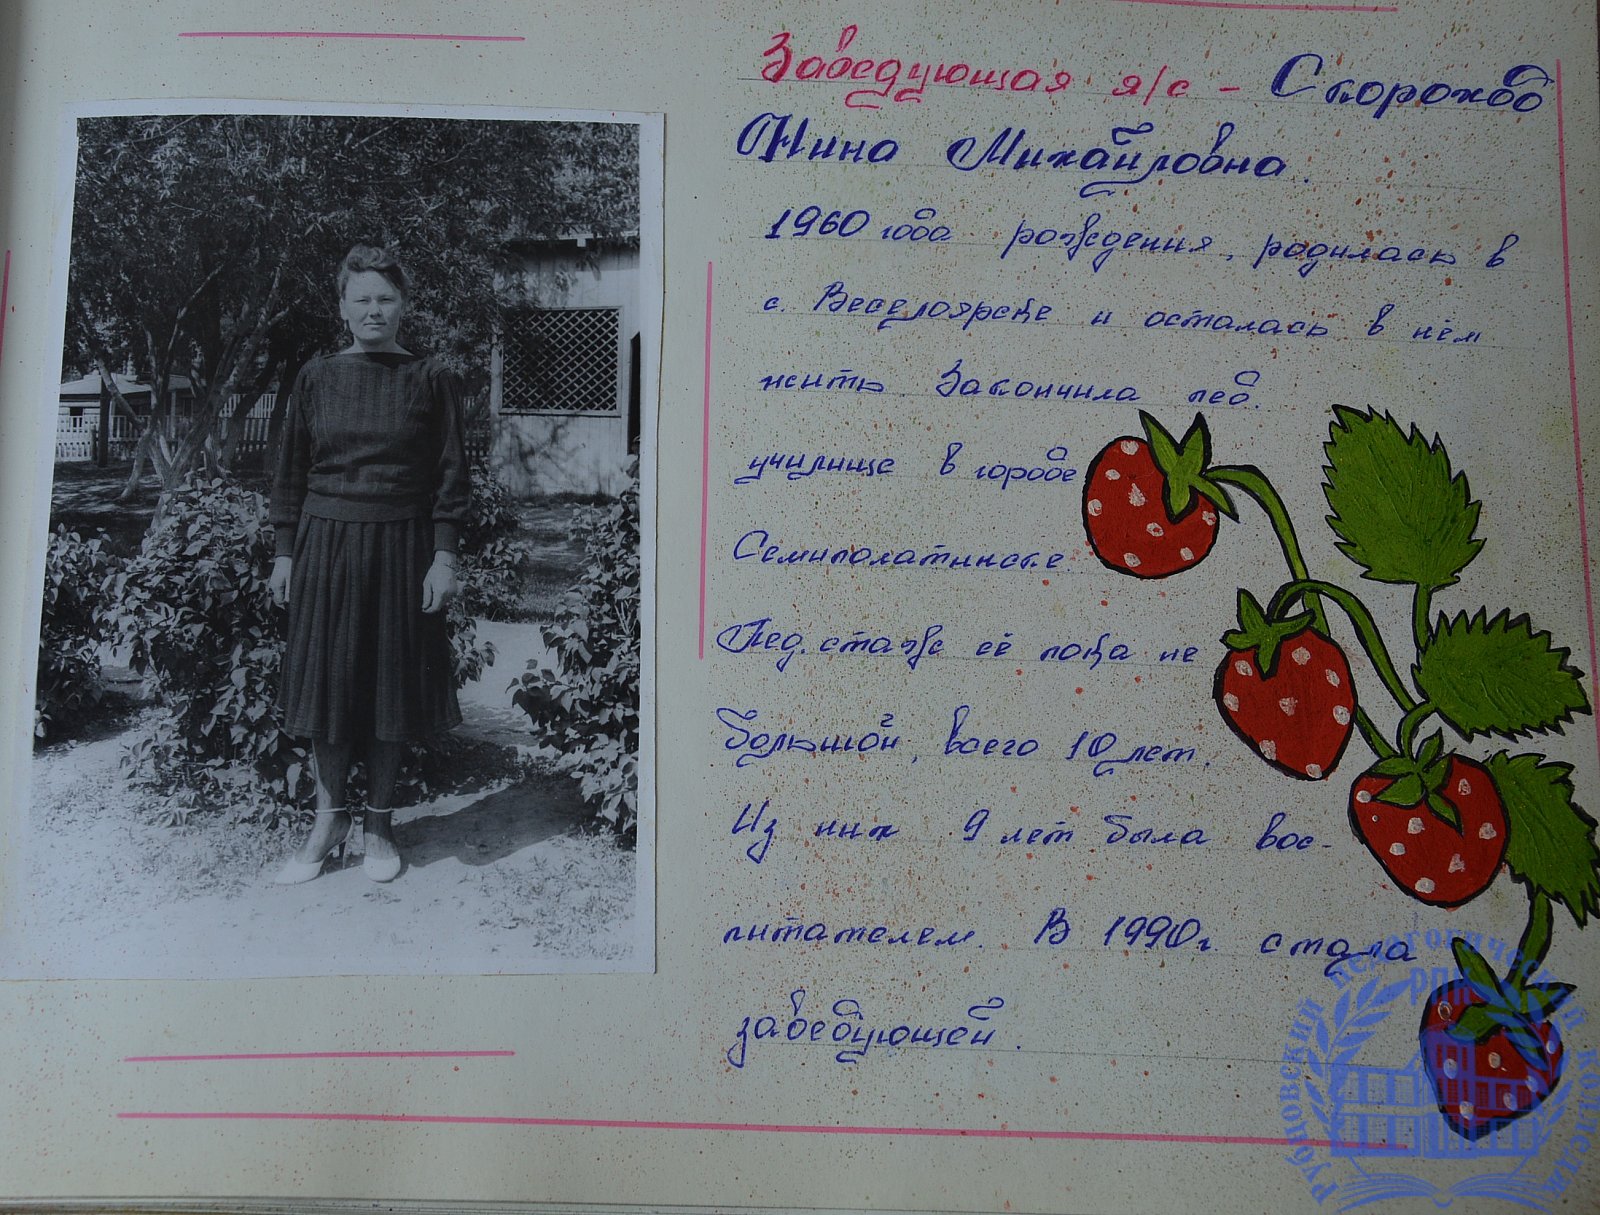 Заведующая я/с - Скороход
Нина Михайловна.
1960 года рождения, родилась в
с. Веселоярске и осталась в нём
жить. Закончила пед.
училище в городе
Семипалатинске.
Пед. стаж её пока не
большой, всего 10 лет.
Из них 9 лет была вос-
питателем. В 1990г. стала
заведующей.
РПК
Рубцовский педагогический колледж